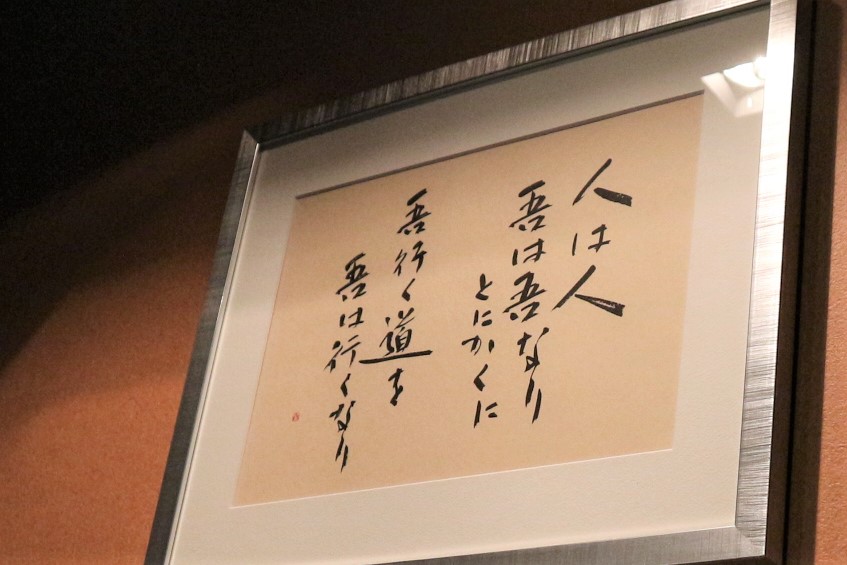 人は人
吾は吾なり
とにかくに
吾行く道を
吾は行くなり